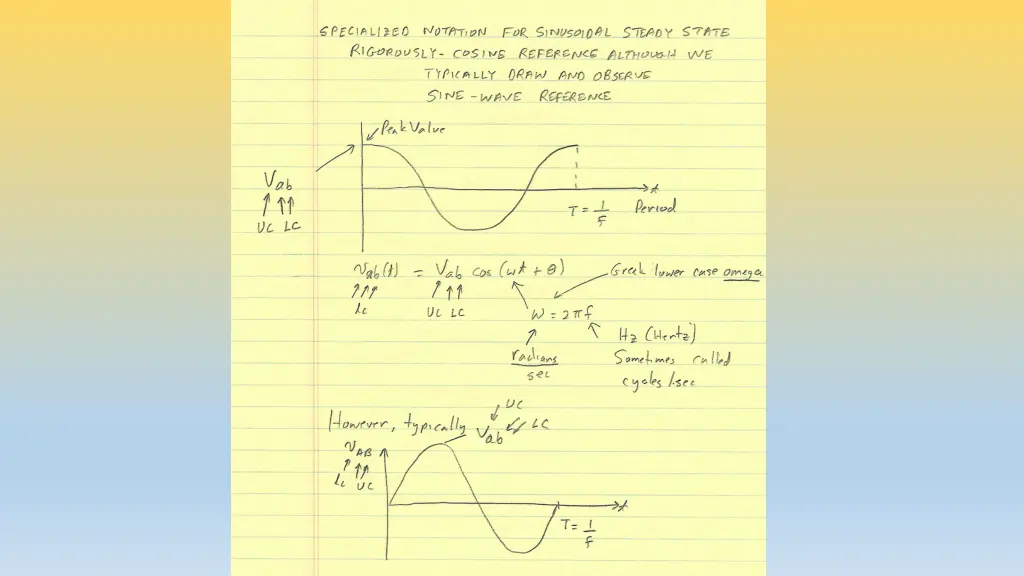 SPECIALIZED NOTATION FOR SINUSOIDAL STEADY STATE
RIGOROUSLY- COSINE REFERENCE ALTHOUGH WE
TYPICALLY DRAW AND OBSERVE
SINE-WAVE REFERENCE
Peak Value
Vab
UC LC
t
T = 1/f Period
vab(t) = Vab cos (ωt + θ)
Greek lower case omega
lc
UC LC
ω = 2πf
Hz (Hertz)
radians
sec
Sometimes called
cycles/sec
UC
However, typically Vab LC
vAB
lc UC
t
T = 1/f